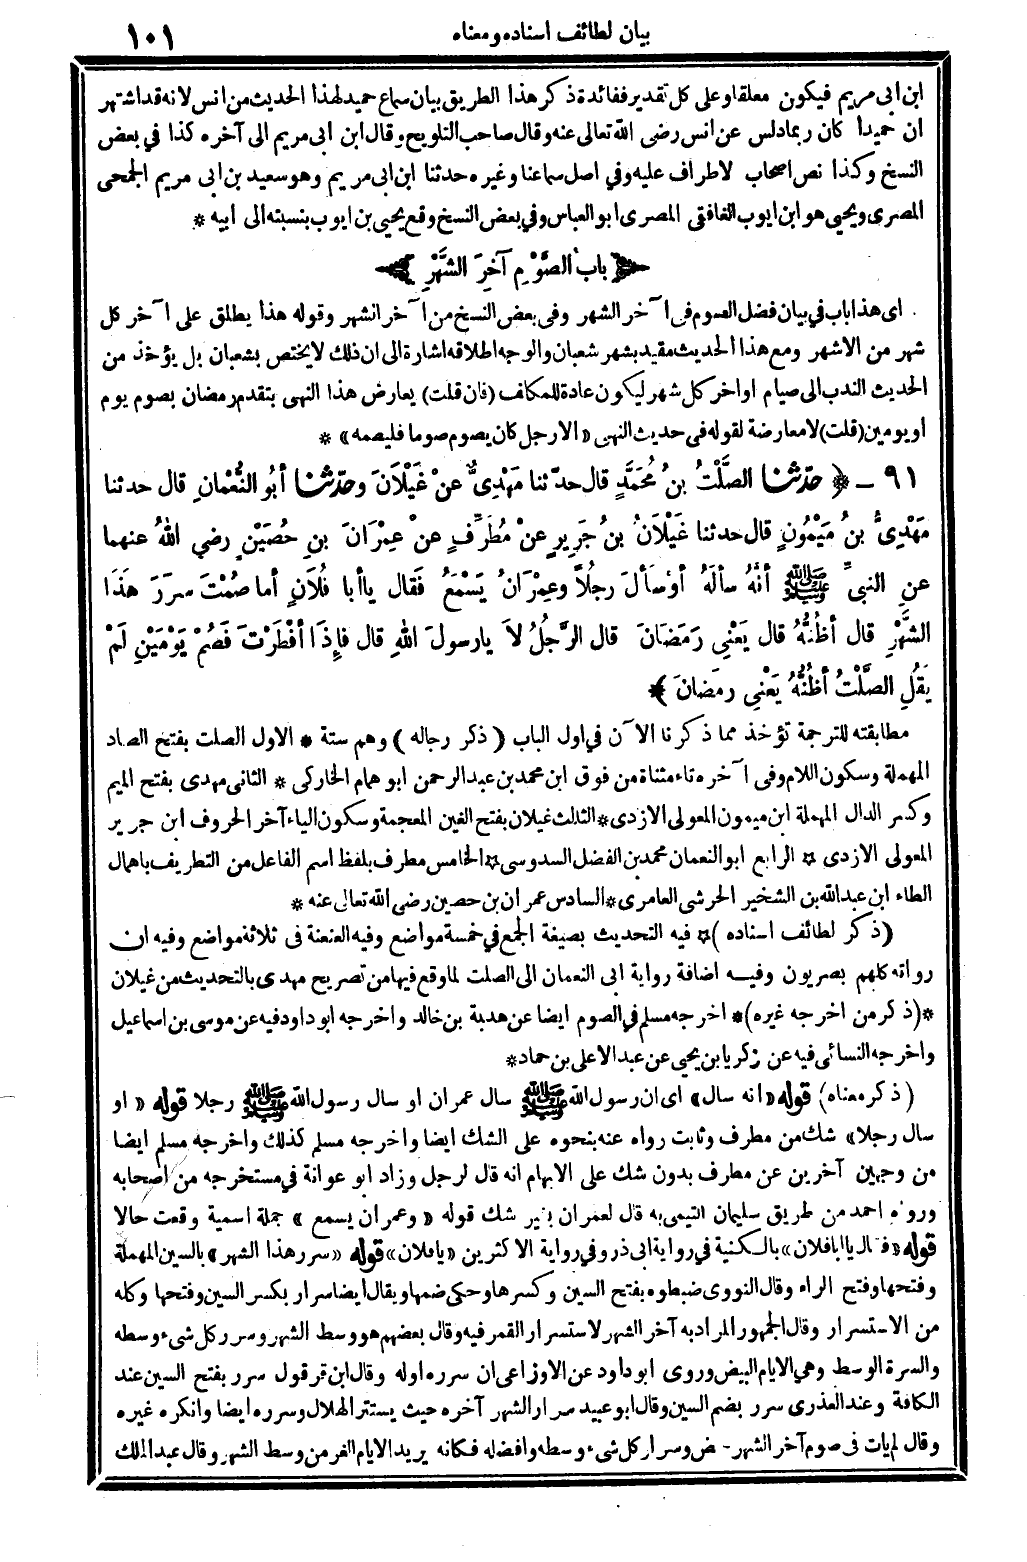 بيان لطائف اسناده ومعناه
١٠١
ابن ابى مريم فيكون معلقا وعلى كل تقدير ففائدة ذكر هذا الطريق بيان سماع حميد لهذا الحديث من انس لانه قد اشتهر
ان حميدا كان ربما دلس عن انس رضى الله تعالى عنه وقال صاحب التلويح وقال ابن ابى مريم الى آخره كذا في بعض
النسخ وكذا نص اصحاب لاطراف عليه وفي اصل سماعنا وغيره حدثنا ابن ابى مريم وهو سعيد بن ابى مريم الجمحى
المصرى ويحيى هو ابن ايوب الغافقى المصرى ابو العباس وفي بعض النسخ وقع يحيى بن ايوب بنسبته الى ابيه *
﴿ بابُ الصَّوْمِ آخِرَ الشَّهْرِ ﴾
اى هذا باب في بيان فضل الصوم فى آخر الشهر وفى بعض النسخ من آخر الشهر وقوله هذا يطلق على آخر كل
شهر من الاشهر ومع هذا الحديث مقيد بشهر شعبان والوجه اطلاقه اشارة الى ان ذلك لا يختص بشعبان بل يؤخذ من
الحديث الندب الى صيام اواخر كل شهر ليكون عادة للمكلف (فان قلت) يعارض هذا النهى بتقدم رمضان بصوم يوم
او يومين (قلت) لا معارضة لقوله فى حديث النهى «الا رجل كان يصوم صوما فليصمه» *
٩١ - ﴿ حدّثنا الصَّلْتُ بنُ مُحَمَّدٍ قال حدّثنا مَهْدِىٌّ عنْ غَيْلَانَ وحدّثنا أبُو النُّعْمانِ قال حدثنا
مَهْدِىُّ بنُ مَيْمُونٍ قال حدثنا غَيْلَانُ بنُ جَرِيرٍ عنْ مُطَرِّفٍ عنْ عِمْرَانَ بنِ حُصَيْنٍ رضي اللهُ عنهما
عنِ النبيِّ ﷺ أنَّهُ سألَهُ أوْ سَأَلَ رجُلاً وعِمْرَانُ يَسْمَعُ فَقال ياأبا فُلَانٍ أما صُمْتَ سرَرَ هَذَا
الشَّهْرِ قال أظُنُّهُ قال يَعْنِي رَمَضَانَ قال الرَّجُلُ لاَ يارسولَ اللهِ قال فإِذَا أفْطَرْتَ فَصُمْ يَوْمَيْنِ لَمْ
يَقُلِ الصَّلْتُ أظُنُّهُ يَعْنِي رمَضانَ ﴾ *
مطابقته للترجمة تؤخذ مما ذكرنا الآن في اول الباب ( ذكر رجاله ) وهم ستة * الاول الصلت بفتح الصاد
المهملة وسكون اللام وفى آخره تاء مثناة من فوق ابن محمد بن عبد الرحمن ابو همام الخاركى * الثانى مهدى بفتح الميم
وكسر الدال المهملة ابن ميمون المعولى الازدى * الثالث غيلان بفتح الغين المعجمة وسكون الياء آخر الحروف ابن جرير
المعولى الازدى * الرابع ابو النعمان محمد بن الفضل السدوسى * الخامس مطرف بلفظ اسم الفاعل من التطريف باهمال
الطاء ابن عبد الله بن الشخير الحرشى العامرى * السادس عمران بن حصين رضى الله تعالى عنه *
(ذكر لطائف اسناده ) * فيه التحديث بصيغة الجمع في خمسة مواضع وفيه العنعنة فى ثلاثة مواضع وفيه ان
رواته كلهم بصريون وفيه اضافة رواية ابى النعمان الى الصلت لما وقع فيها من تصريح مهدى بالتحديث من غيلان
* (ذكر من اخرجه غيره) * اخرجه مسلم في الصوم ايضا عن هدبة بن خالد واخرجه ابو داود فيه عن موسى بن اسماعيل
واخرجه النسائى فيه عن زكريا بن يحيى عن عبد الاعلى بن حماد *
( ذكر معناه) قوله «انه سال» اى ان رسول الله ﷺ سال عمران او سال رسول الله ﷺ رجلا قوله « او
سال رجلا» شك من مطرف وثابت رواه عنه بنحوه على الشك ايضا واخرجه مسلم كذلك واخرجه مسلم ايضا
من وجهين آخرين عن مطرف بدون شك على الابهام انه قال لرجل وزاد ابو عوانة في مستخرجه من اصحابه
ورواه احمد من طريق سليمان التيمى به قال لعمران بغير شك قوله « وعمران يسمع » جملة اسمية وقعت حالا
قوله « فقال ياابا فلان» بالكنية في رواية ابى ذر وفي رواية الاكثرين « يافلان» قوله « سرر هذا الشهر» بالسين المهملة
وفتحها وفتح الراء وقال النووى ضبطوه بفتح السين وكسرها وحكى ضمها ويقال ايضا سرار بكسر السين وفتحها وكله
من الاستسرار وقال الجمهور المراد به آخر الشهر لاستسرار القمر فيه وقال بعضهم هو وسط الشهر وسرر كل شىء وسطه
والسرة الوسط وهي الايام البيض وروى ابو داود عن الاوزاعى ان سرره اوله وقال ابن قرقول سرر بفتح السين عند
الكافة وعند العذرى سرر بضم السين وقال ابو عبيد سرار الشهر آخره حيث يستتر الهلال وسرره ايضا وانكره غيره
وقال لم يات فى صوم آخر الشهر حض وسرار كل شىء وسطه وافضله فكانه يريد الايام الغر من وسط الشهر وقال عبد الملك